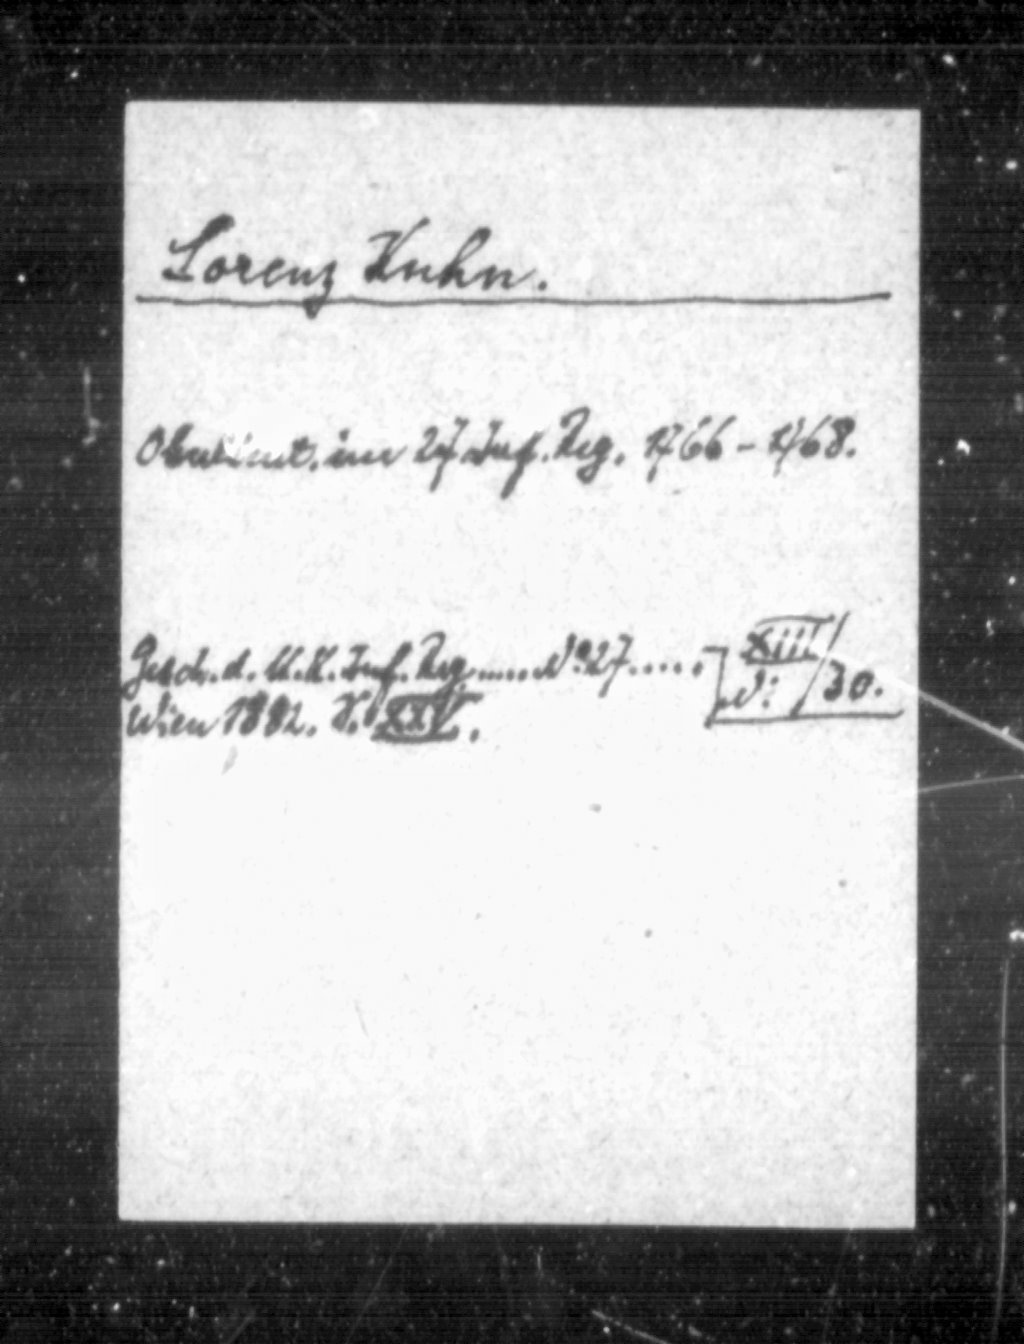 Lorenz Kuhn.
Oberlieut. im 27 Inf. Reg. 1766 - 1768.
Gesch. d. K. K. Inf. Reg..... N: 27..... XIII/30.
Wien 1882. XXV. N: